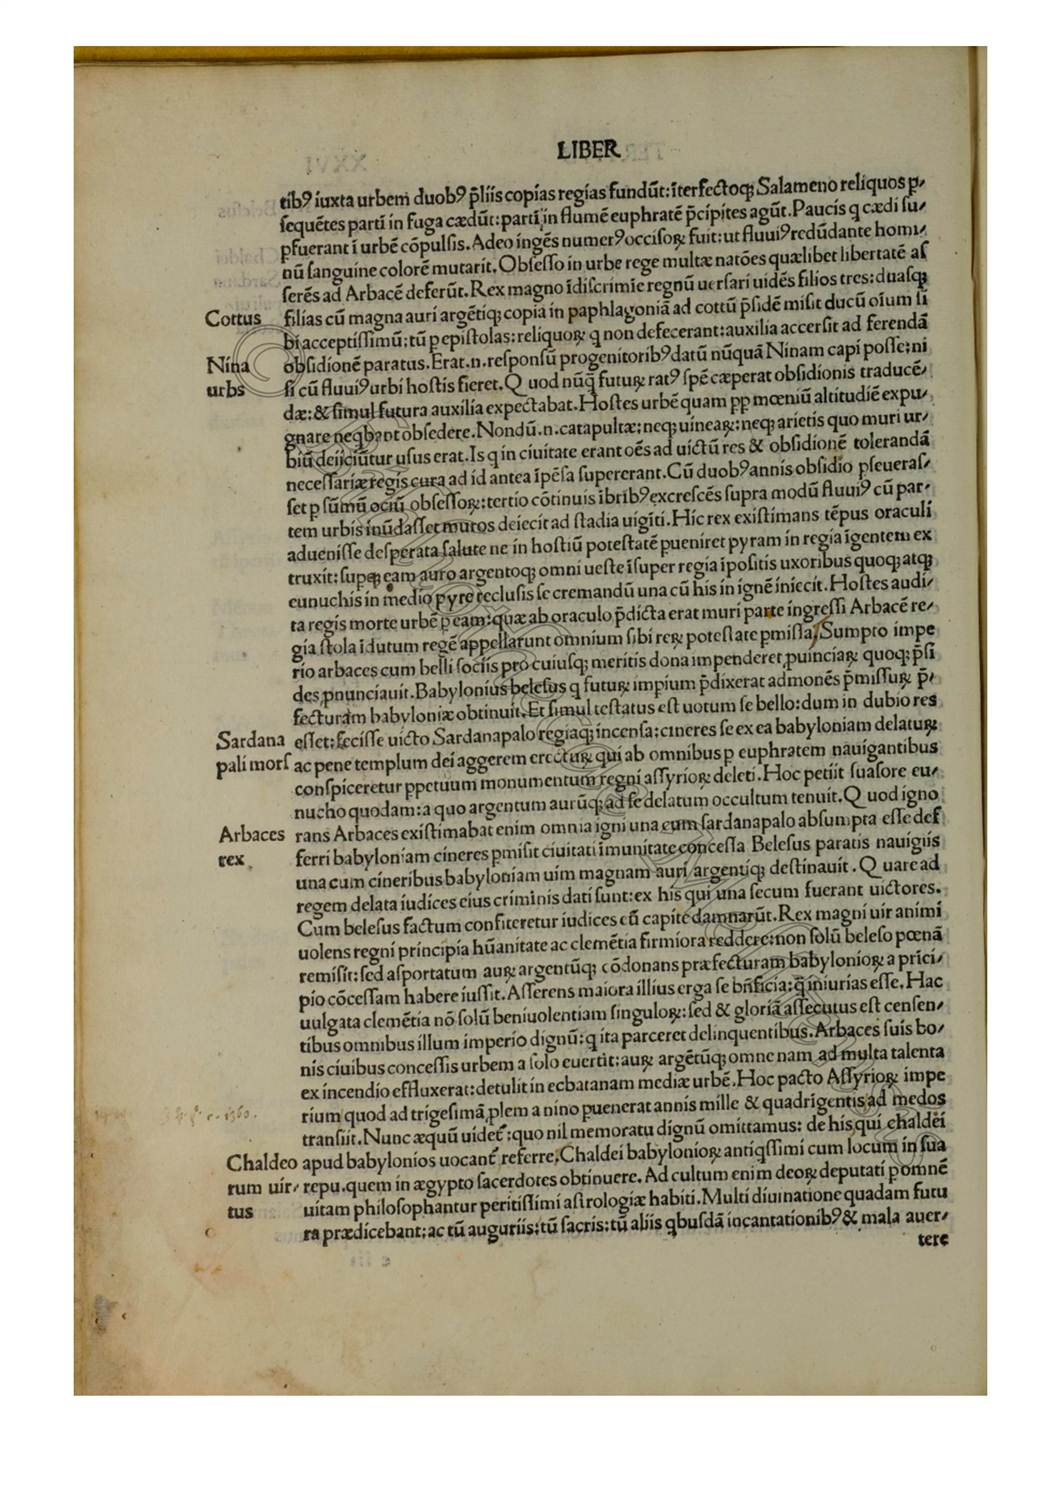 LIBER
tibꝰ iuxta urbem duobꝰ p̄liis copias regias fundūt: īterfectoq; Salameno reliquos p/
sequētes partī in fuga cædūt: partī in flumē euphratē p̄cipites agūt. Paucis q cædi su/
pfuerant ī urbē cōpulsis. Adeo ingēs numerꝰ occisoꝝ fuit: ut fluuiꝰ redūdante homi/
nū sanguine colorē mutarit. Obsesso in urbe rege multæ natōes quælibet libertatē as
serēs ad Arbacē deferūt. Rex magno īdiscrimīe regnū uersari uidēs filios tres: duasq;
Cottus
filias cū magna auri argētiq; copia in paphlagoniā ad cottū p̄sidē misit ducū oīum si
bi acceptissimū: tū p epistolas: reliquoꝝ q non defecerant: auxilia accersit ad ferendā
Nina
urbs
obsidionē paratus. Erat .n. responsū progenitoribꝰ datū nūquā Ninam capi posse: ni
si cū fluuiꝰ urbi hostis fieret. Q uod nūq̄ futuꝝ ratꝰ spē cæperat obsidionis traducē/
dæ: & simul futura auxilia expectabat. Hostes urbē quam pp mœniū altitudiē expu/
gnare neqbant obsedere. Nondū .n. catapultæ; neq; uineaꝝ: neq; arietis quo muri ur/
biū deiiciūtur usus erat. Is q in ciuitate erant oēs ad uictū res & obsidionē tolerandā
necessariæ regis cura ad id antea īpēsa supererant. Cū duobꝰ annis obsidio pseueras/
set p sūmū ociū obsessoꝝ: tertio cōtinuis ībribꝰ excrescēs supra modū fluuiꝰ cū par/
tem urbis inūdasset muros deiecit ad stadia uigīti. Hic rex existimans tēpus oraculi
aduenisse desperata salute ne in hostiū potestatē pueniret pyram in regia īgentem ex
truxit: supq; eam auro argentoq; omni ueste īsuper regia īpositis uxoribus quoq; atq;
eunuchis in medio pyre reclusis se cremandū una cū his in ignē iniecit. Hostes audi/
ta regis morte urbē p eam: quæ ab oraculo p̄dicta erat muri parte ingressi Arbacē re/
gia stola īdutum regē appellarunt omnium sibi reꝝ potestate pmissa. Sumpto impe
rio arbaces cum belli sociis pro cuiusq; meritis dona impenderet puinciaꝝ quoq; p̄si
des pnunciauit. Babylonius belesus q futuꝝ impium p̄dixerat admonēs p̄missuꝝ p̄/
fecturam babyloniæ obtinuit. Et simul testatus est uotum se bello: dum in dubio res
Sardana
pali mors
esset: fecisse uicto Sardanapalo regiaq; incensa: cineres se ex ea babyloniam delatuꝝ
ac pene templum dei aggerem erectuꝝ qui ab omnibus p euphratem nauigantibus
conspiceretur ppetuum monumentum regni assyrioꝝ deleti. Hoc petiit suasore eu/
nucho quodam: a quo argentum aurūq; ad se delatum occultum tenuit. Q uod igno
Arbaces
rex
rans Arbaces existimabat enim omnia igni una cum sardanapalo absumpta esse def
ferri babyloniam cineres pmisit ciuitati īmunitate concessa Belesus paratis nauigiis
una cum cineribus babyloniam uim magnam auri argentiq; destinauit. Q uare ad
regem delata iudices eius criminis dati sunt: ex his qui una secum fuerant uictores.
Cum belesus factum confiteretur iudices eū capite damnarūt. Rex magni uir animi
uolens regni principia hūanitate ac clemētia firmiora reddere: non solū beleso pœnā
remisit: sed asportatum auꝝ argentūq; cōdonans præfecturam babylonioꝝ a prīci/
pio cōcessam habere iussit. Asserens maiora illius erga se bn̄ficia: q̄ iniurias esse. Hac
uulgata clemētia nō solū beniuolentiam singuloꝝ: sed & gloriā assecutus est censen/
tibus omnibus illum imperio dignū: q ita parceret delinquentibus. Arbaces suis bo/
nis ciuibus concessis urbem a solo euertit: auꝝ argētūq; omne nam ad multa talenta
ex incendio effluxerat: detulit in ecbatanam mediæ urbē. Hoc pacto Assyrioꝝ impe
rium quod ad trigesimā plem a nino puenerat annis mille & quadrigentis ad medos
transiit. Nunc æquū uidet̄: quo nil memoratu dignū omittamus: de his qui chaldei
Chaldeo
rum uir/
tus
apud babylonios uocant̄ referre. Chaldei babylonioꝝ antiqssimi cum locum in sua
repu. quem in ægypto sacerdotes obtinuere. Ad cultum enim deoꝝ deputati p omnē
uitam philosophantur peritissimi astrologiæ habiti. Multi diuinatione quadam futu
ra prædicebant; ac tū auguriis: tū sacris: tū aliis qbusdā incantationibꝰ & mala auer/
tere